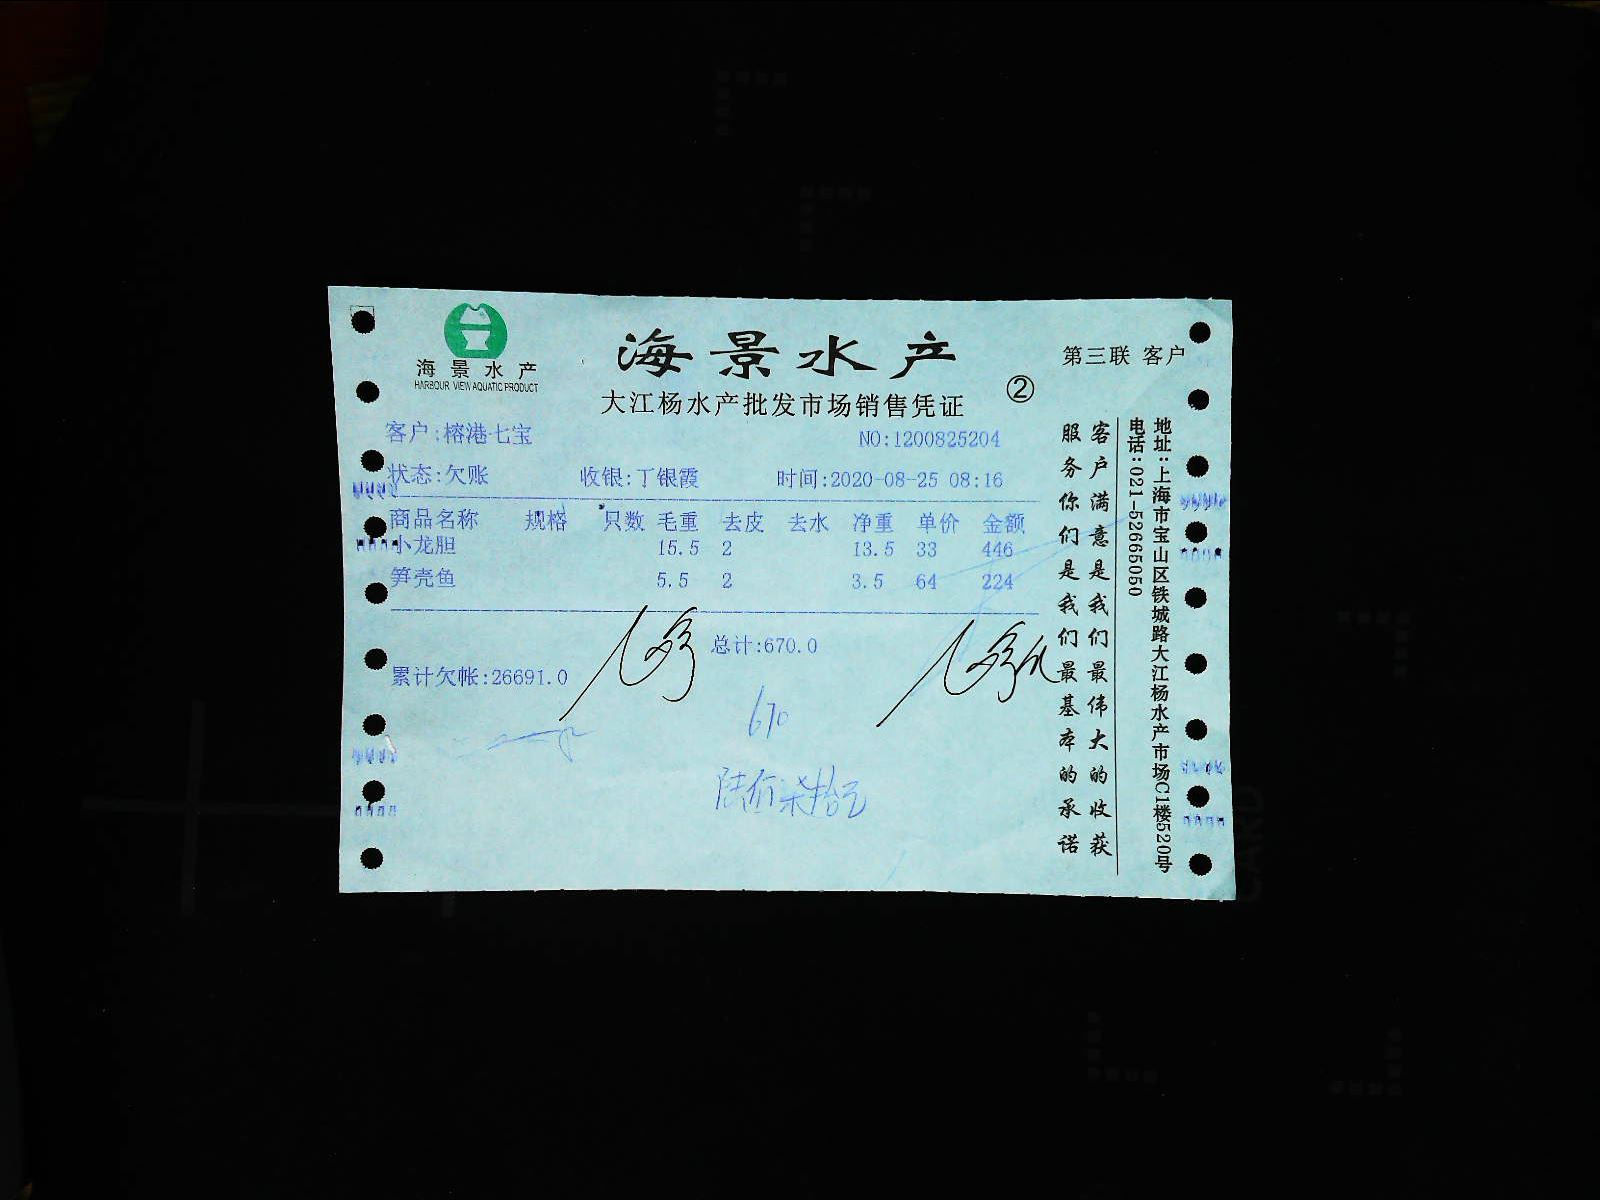 海景水产
HARBOUR VIEW AQUATIC PRODUCT
海景水产
第三联 客户
大江杨水产批发市场销售凭证 ②
客户:榕港七宝 NO:1200825204
状态:欠账 收银:丁银霞 时间:2020-08-25 08:16
商品名称 规格 只数 毛重 去皮 去水 净重 单价 金额
小龙胆 15.5 2 13.5 33 446
笋壳鱼 5.5 2 3.5 64 224
总计:670.0
累计欠帐:26691.0
670
陆佰柒拾元
客户满意是我们最伟大的收获
服务你们是我们最基本的承诺
地址:上海市宝山区铁城路大江杨水产市场C1楼520号
电话:021-52665050